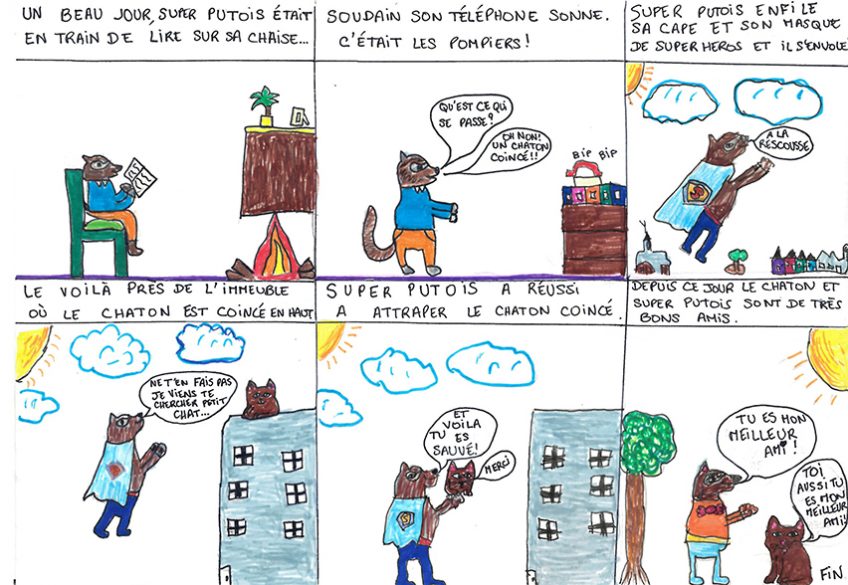 UN BEAU JOUR, SUPER PUTOIS ÉTAIT
EN TRAIN DE LIRE SUR SA CHAISE...
SOUDAIN SON TÉLÉPHONE SONNE.
C'ÉTAIT LES POMPIERS!
QU'EST CE QUI
SE PASSE?
OH NON!
UN CHATON
COINCÉ!!
BIP BIP
SUPER PUTOIS ENFILE
SA CAPE ET SON MASQUE
DE SUPER HEROS ET IL S'ENVOLE
A LA
RESCOUSSE
S
LE VOILÀ PRES DE L'IMMEUBLE
OÙ LE CHATON EST COINCÉ EN HAUT
NE T'EN FAIS PAS
JE VIENS TE
CHERCHER PETIT
CHAT...
SUPER PUTOIS A RÉUSSI
A ATTRAPER LE CHATON COINCÉ.
ET
VOILA
TU ES
SAUVÉ!
MERCI
S
DEPUIS CE JOUR LE CHATON ET
SUPER PUTOIS SONT DE TRÈS
BONS AMIS.
TU ES MON
MEILLEUR
AMI!
TOI
AUSSI TU
ES MON
MEILLEUR
AMI!
FIN